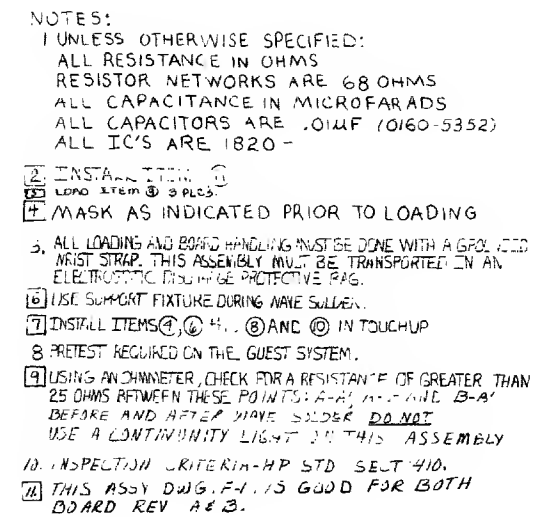 NOTES:
1 UNLESS OTHERWISE SPECIFIED:
ALL RESISTANCE IN OHMS
RESISTOR NETWORKS ARE 68 OHMS
ALL CAPACITANCE IN MICROFARADS
ALL CAPACITORS ARE .01UF (0160-5352)
ALL IC'S ARE 1820-
2. INSTALL ITEM 11
3 LOAD ITEM 3 3 PLCS.
4 MASK AS INDICATED PRIOR TO LOADING
5. ALL LOADING AND BOARD HANDLING MUST BE DONE WITH A GROUNDED
WRIST STRAP. THIS ASSEMBLY MUST BE TRANSPORTED IN AN
ELECTROSTATIC DISCHARGE PROTECTIVE BAG.
6 USE SUPPORT FIXTURE DURING WAVE SOLDER.
7 INSTALL ITEMS 4, 6 8 AND 10 IN TOUCHUP
8 PRETEST REQUIRED ON THE GUEST SYSTEM.
9 USING AN OHMMETER, CHECK FOR A RESISTANCE OF GREATER THAN
25 OHMS BETWEEN THESE POINTS: AND B-A'
BEFORE AND AFTER WAVE SOLDER DO NOT
USE A CONTINUITY LIGHT ON THIS ASSEMBLY
10. INSPECTION CRITERIA-HP STD SECT 410.
11. THIS ASSY DWG. F-1. IS GOOD FOR BOTH
BOARD REV A & B.